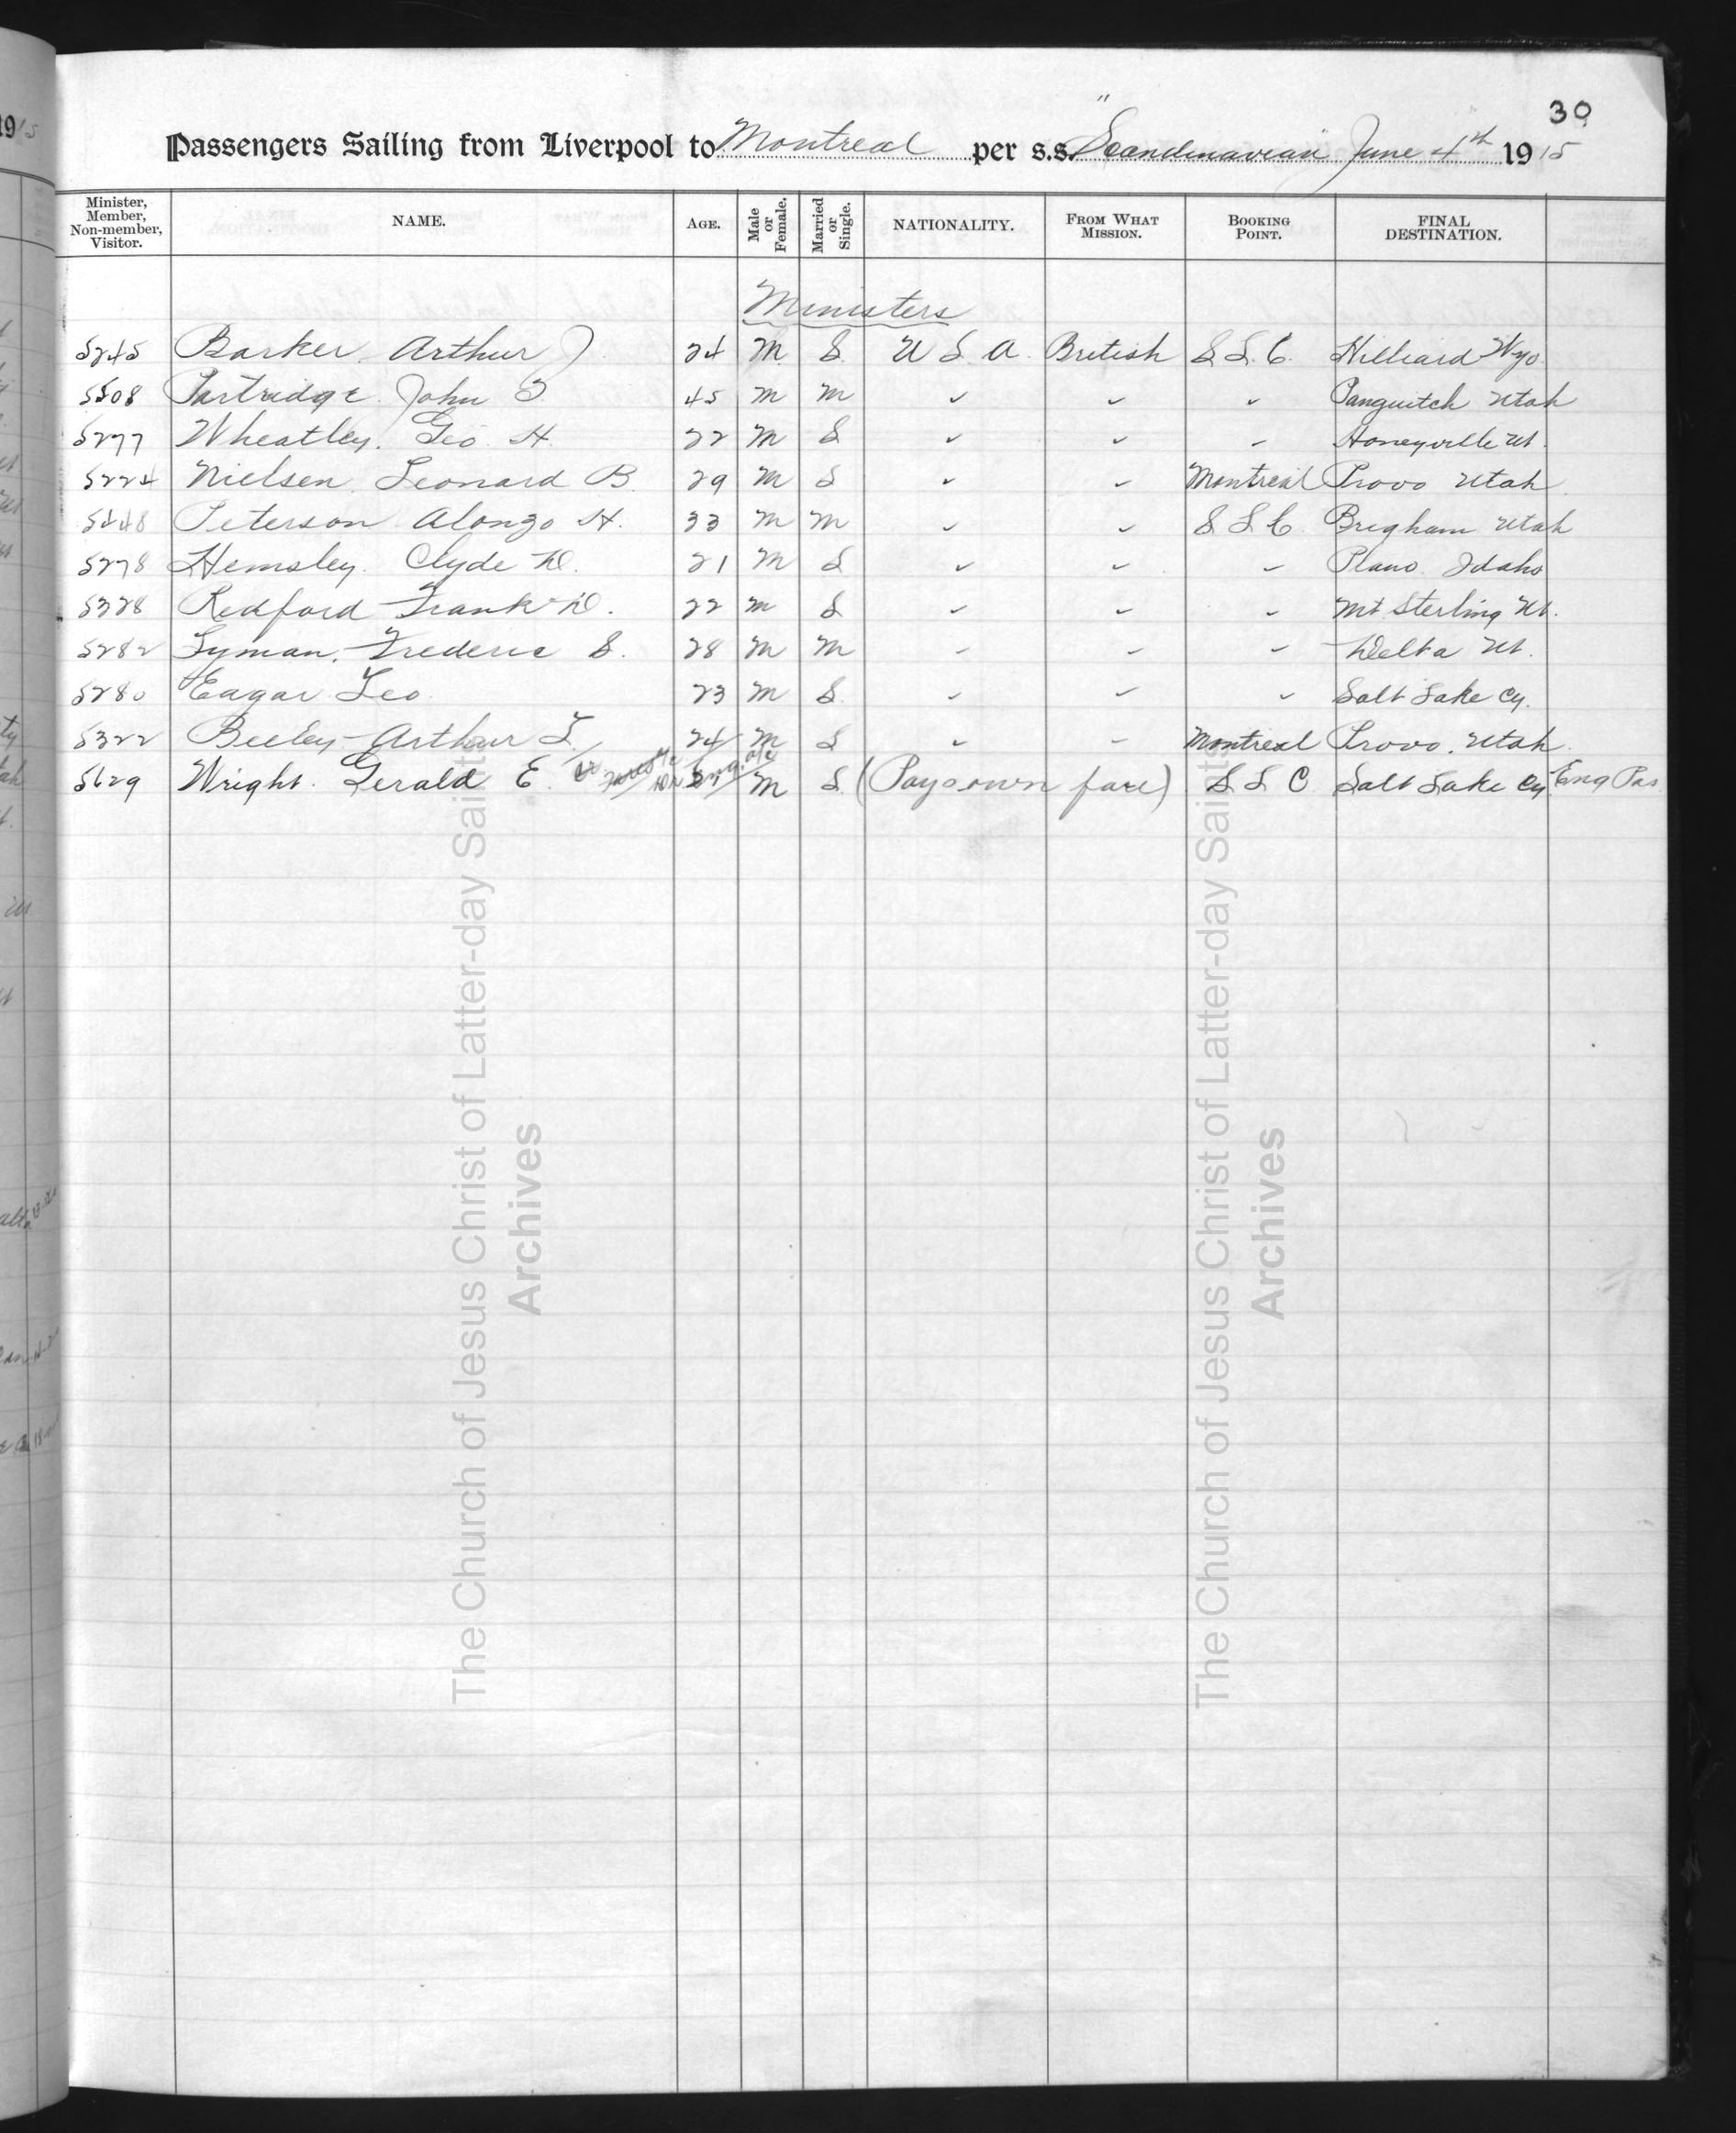 30
Passengers Sailing from Liverpool to Montreal per s.s. "Scandinavian" June 4th 1915
Minister, Member, Non-member, Visitor. NAME. AGE. Male or Female. Married or Single. NATIONALITY. FROM WHAT MISSION. BOOKING POINT. FINAL DESTINATION.
Ministers
5245 Barker Arthur J. 24 M. S. U S A. British S L C. Hilliard Wyo.
5508 Partridge John 45 M M ✓ ✓ ✓ Panguitch Utah
5277 Wheatley, Geo H. 22 M S ✓ ✓ ✓ Honeyville Ut.
5224 Nielsen, Leonard B. 29 M S ✓ ✓ Montreal Provo Utah
5448 Peterson Alonzo H. 33 M M ✓ ✓ S L C Brigham Utah
5278 Hemsley. Clyde D. 21 M S ✓ ✓ ✓ Plano Idaho
5328 Redford Frank D. 22 M S ✓ ✓ ✓ Mt Sterling Ut.
5282 Lyman, Frederic S. 28 M M ✓ ✓ ✓ Delta Ut.
5280 Eagar Leo 23 M S. ✓ ✓ ✓ Salt Lake Cy.
5322 Beeley Arthur L. 24 M S ✓ ✓ Montreal Provo. Utah.
5629 Wright. Gerald E. M S (Pays own fare) S L C Salt Lake Cy Eng Pas
The Church of Jesus Christ of Latter-day Saints
Archives
The Church of Jesus Christ of Latter-day Saints
Archives